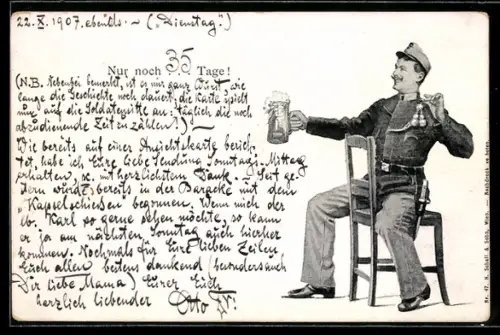 22. X. 1907. abends. — („Dienstag.")
35
Nur noch Tage!
(N.B. Nebenbei bemerkt, ist es mir ganz Wurst, wie
lange die Geschichte noch dauert; die Karte spielt
nur auf die Soldatensitte an: täglich die noch
abzudienende Zeit zu zählen!) —
Wie bereits auf einer Ansichtskarte berich-
tet, habe ich Eure liebe Sendung Sonntags-Mittag
erhalten, sc. mit herzlichstem Dank. - Seit ge-
stern wurde bereits in der Baracke mit dem
"Kapselschießen" begonnen. Wenn mich der
lb. Karl so gerne sehen möchte, so kann
er ja am nächsten Sonntag auch hierher
kommen. Nochmals für Eure lieben Zeilen
Euch allen bestens dankend (besonders auch
Dir liebe Mama) Eurer Euch
herzlich liebender Otto